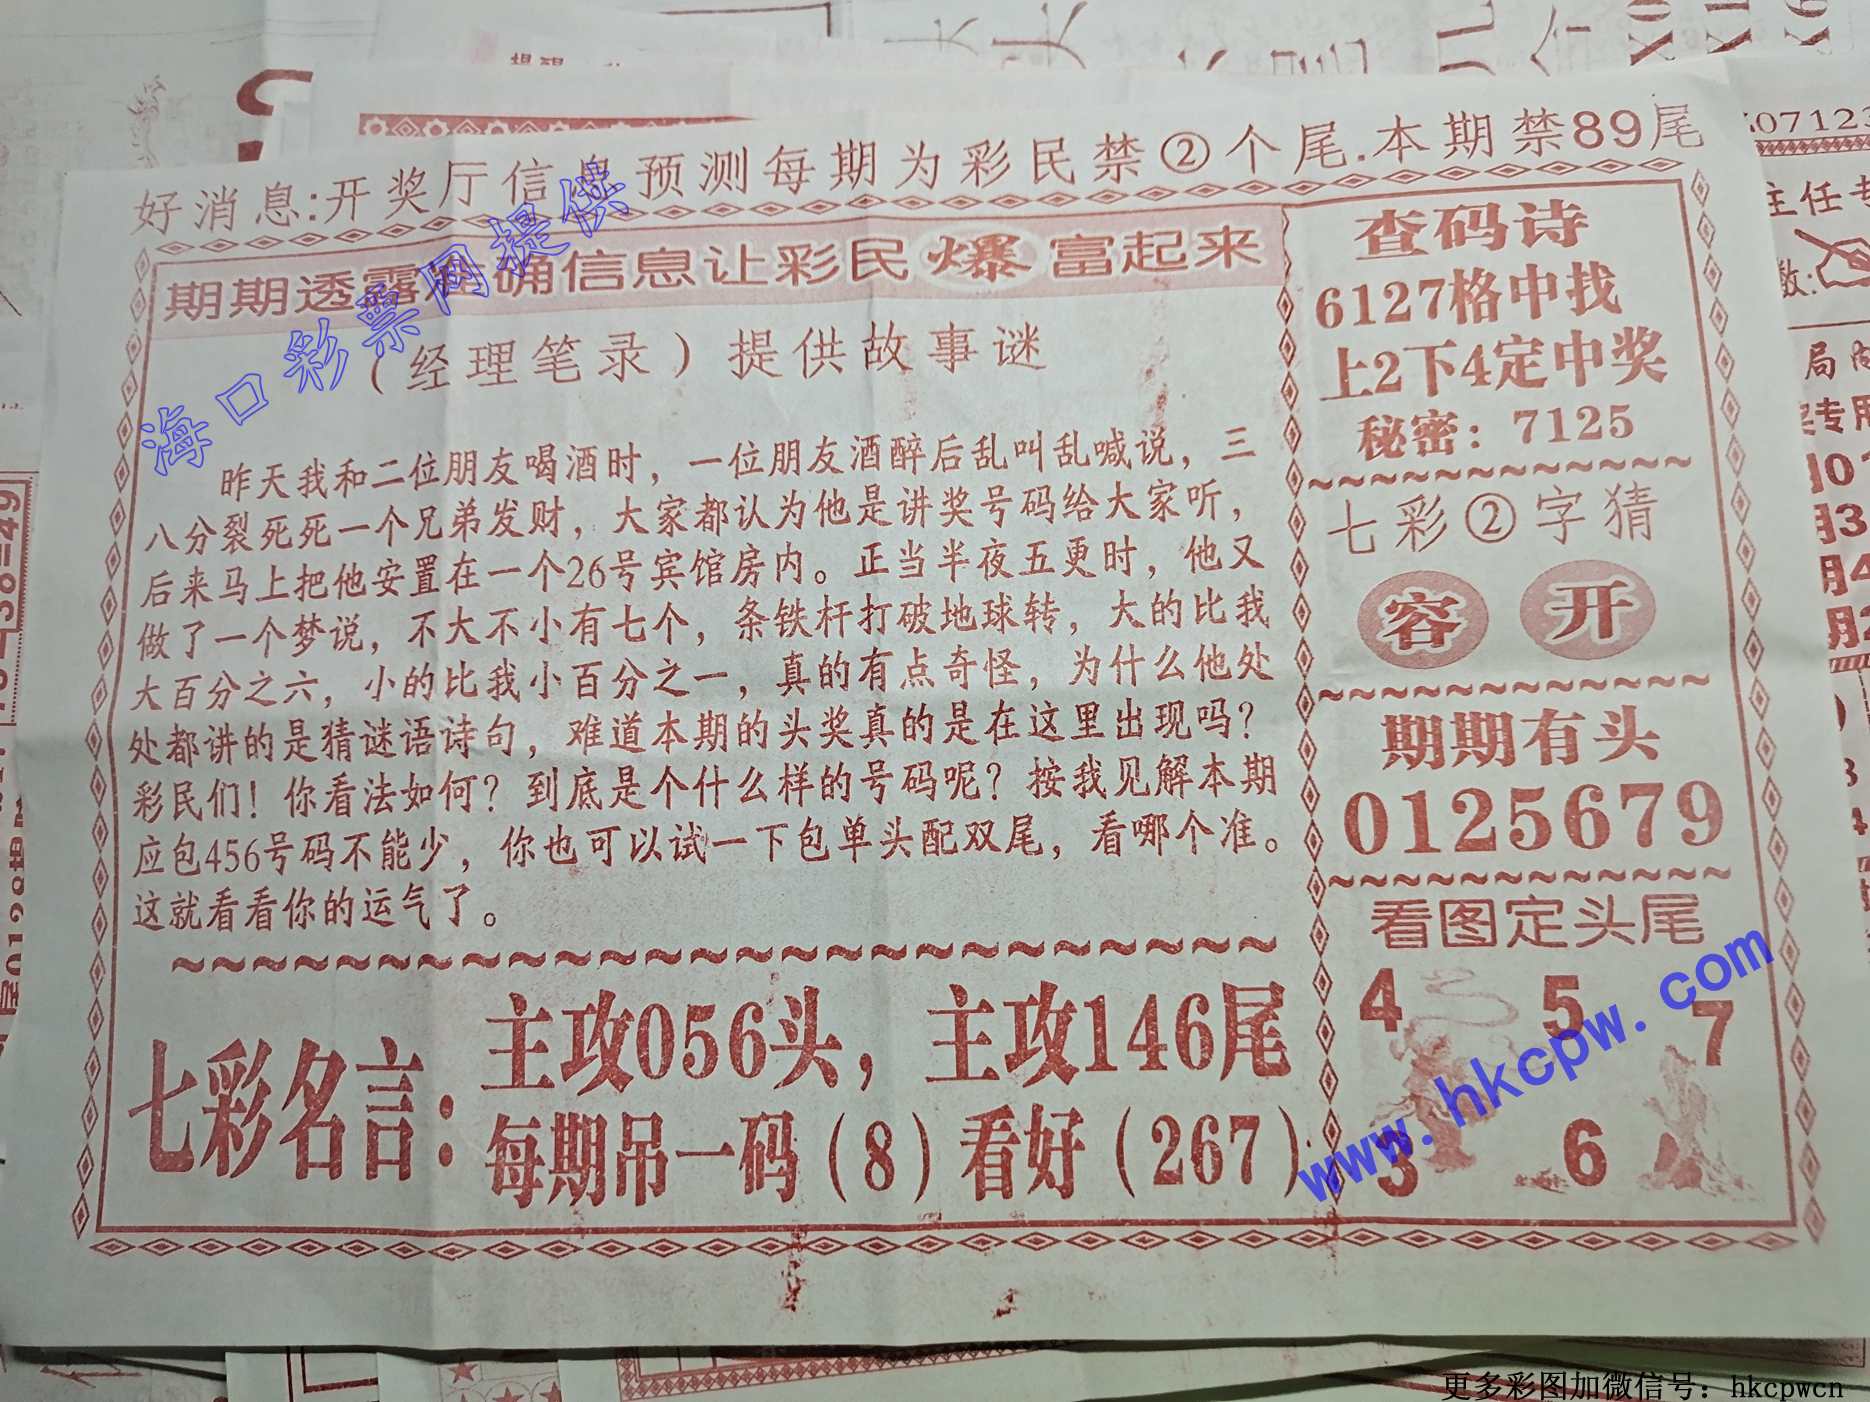 好消息:开奖厅信息预测每期为彩民禁②个尾.本期禁89尾
期期透露准确信息让彩民爆富起来
(经理笔录)提供故事谜
昨天我和二位朋友喝酒时，一位朋友酒醉后乱叫乱喊说，三
八分裂死死一个兄弟发财，大家都认为他是讲奖号码给大家听，
后来马上把他安置在一个26号宾馆房内。正当半夜五更时，他又
做了一个梦说，不大不小有七个，条铁杆打破地球转，大的比我
大百分之六，小的比我小百分之一，真的有点奇怪，为什么他处
处都讲的是猜谜语诗句，难道本期的头奖真的是在这里出现吗？
彩民们！你看法如何？到底是个什么样的号码呢？按我见解本期
应包456号码不能少，你也可以试一下包单头配双尾，看哪个准。
这就看看你的运气了。
七彩名言:
主攻056头，主攻146尾
每期吊一码(8)看好(267)
查码诗
6127格中找
上2下4定中奖
秘密：7125
七彩②字猜
容 开
期期有头
0125679
看图定头尾
4 5 7
3 6
海口彩票网提供
www.hkcpw.com
提醒
607123
主任专
数:
局内
专用
更多彩图加微信号：hkcpwcn